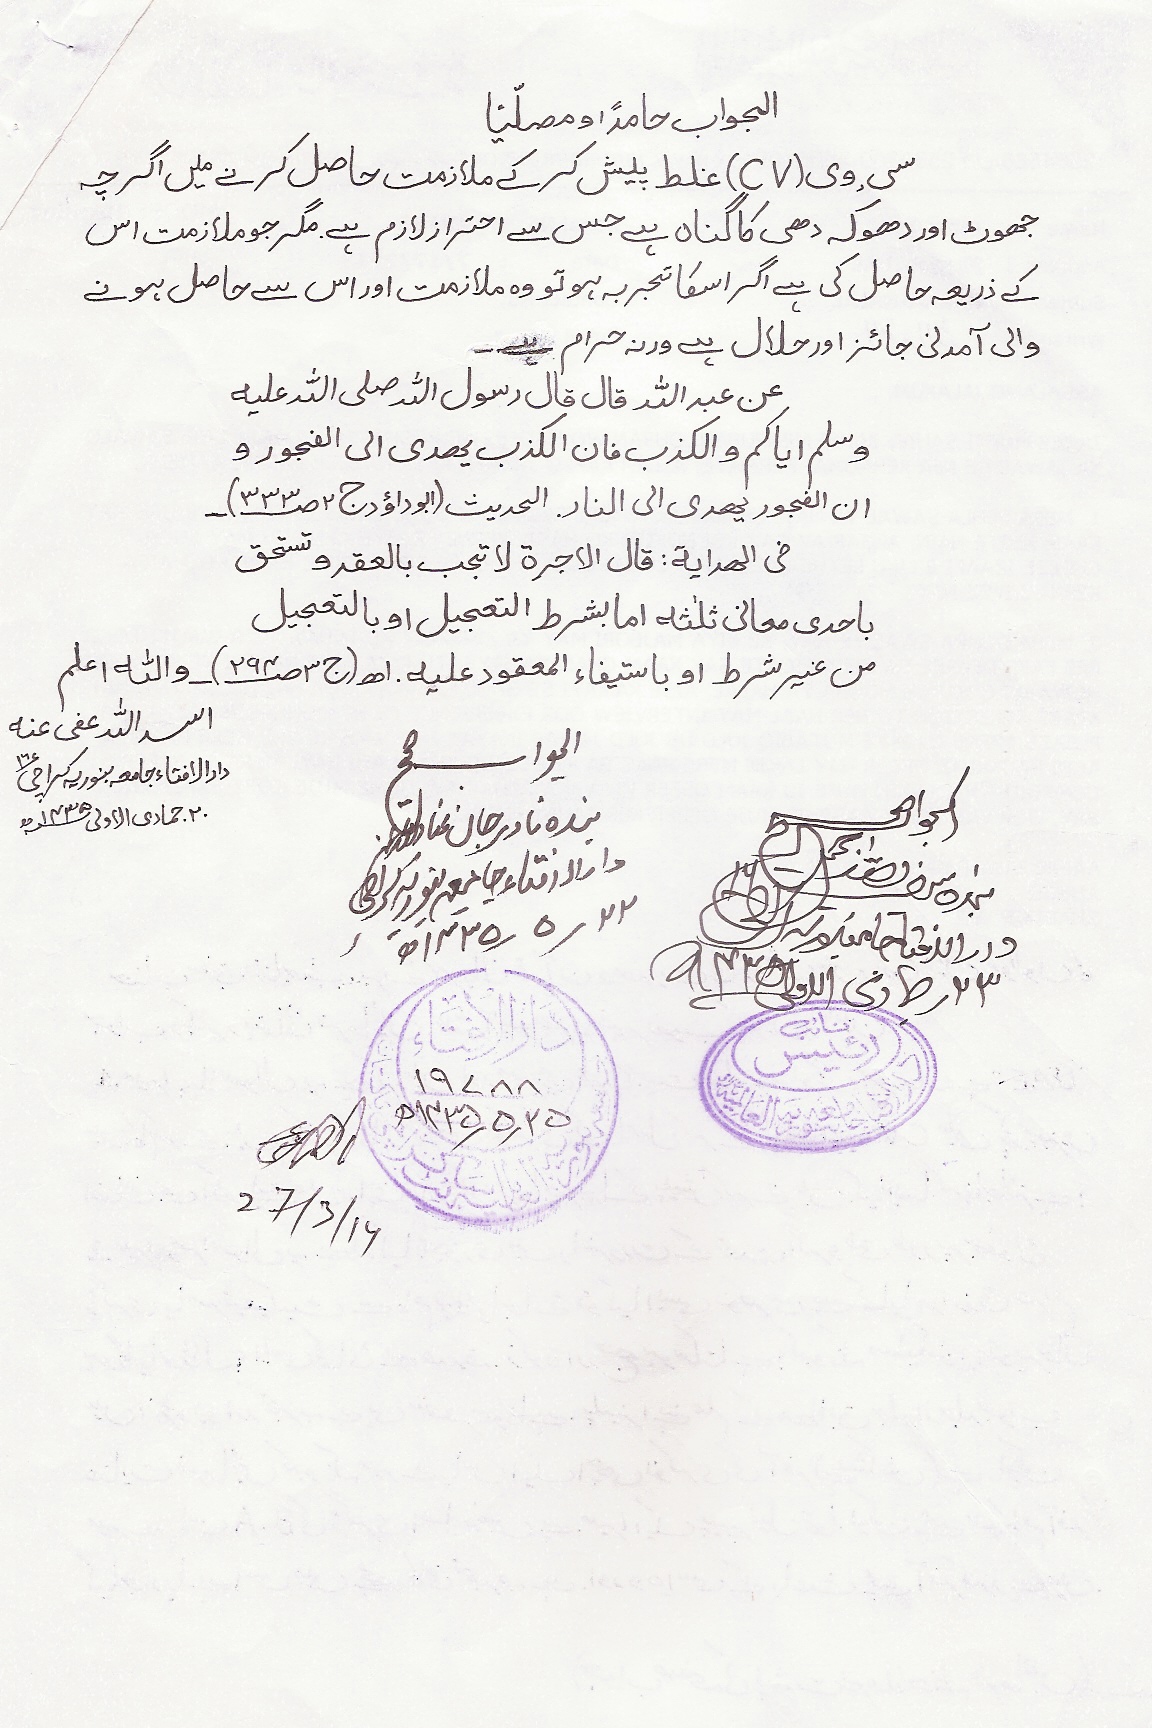 الجواب حامدًا و مصلّیًا
سی وی (CV) غلط پیش کر کے ملازمت حاصل کرنے میں اگرچہ
جھوٹ اور دھوکہ دھی کا گناہ ہے جس سے احتراز لازم ہے۔ مگر جو ملازمت اس
کے ذریعہ حاصل کی ہے اگر اسکا تجربہ ہو تو وہ ملازمت اور اس سے حاصل ہونے
والی آمدنی جائز اور حلال ہے ورنہ حرام ہے۔
عن عبد اللہ قال قال رسول اللہ صلی اللہ علیہ
وسلم ایاکم و الکذب فان الکذب یھدی الی الفجور و
ان الفجور یھدی الی النار۔ الحدیث (ابوداؤد ج ۲ ص ۳۳۳)۔
فی الھدایة: قال الاجرة لا تجب بالعقد و تستحق
باحدی معانی ثلٰثه اما بشرط التعجیل او بالتعجیل
من غیر شرط او باستیفاء المعقود علیه۔ اھ (ج ۳ ص ۲۹۴)۔ واللہ اعلم
اسد اللہ عفی عنہ
دار الافتاء جامعہ بنوریہ کراچی ۱۶
۲۰۔ جمادی الاولی ۱۴۳۵ھ
الجواب صحیح
بندہ نادر جان
دار الافتاء جامعہ بنوریہ کراچی
۲۲ / ۵ / ۱۴۳۵ھ
الجواب صحیح
بندہ سیف اللہ
دار الافتاء جامعہ بنوریہ
۲۳ جمادی الاولی ۱۴۳۵ھ
نائب
رئیس
دار الافتاء جامعہ بنوریہ العالمیہ
دار الافتاء
۱۹۷۸۸
۲۵/۵/۱۴۳۵ھ
27/3/14